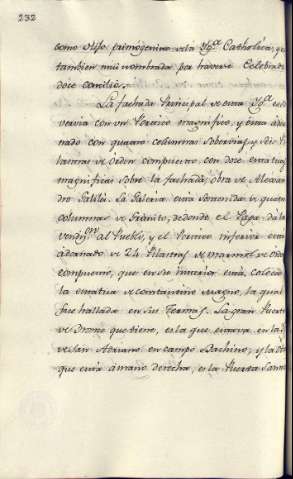 232
como Hijo primogenito de la Yg.ª Catholica, y
tambien mui nombrada por haverse Celebrado
doce concilios.
La fachada Principal de esta Yg.ª es de
veria con un Portico magnifico, y esta ador
nado con quatro columnas sobervias, y dos Pi
lastras de orden compuesto con doce estatuas
magnificas sobre la fachada, obra de Alexan
dro Galilei. La Galeria esta sostenida de quatro
columnas de Granito, de donde el Papa da la
vendi.on al Pueblo, y el Portico inferior esta
adornado de 24 Pilastras de marmol de orden
compuesto, que en su interior esta coloca
la estatua de constantino Magno, la qual
fue hallada en sus Termas. La gran Puerta
de Bronce que tiene, es la que estava en la Yg
de San Adriano en campo Bachino, y la otra
que esta a mano derecha, es la Puerta Santa